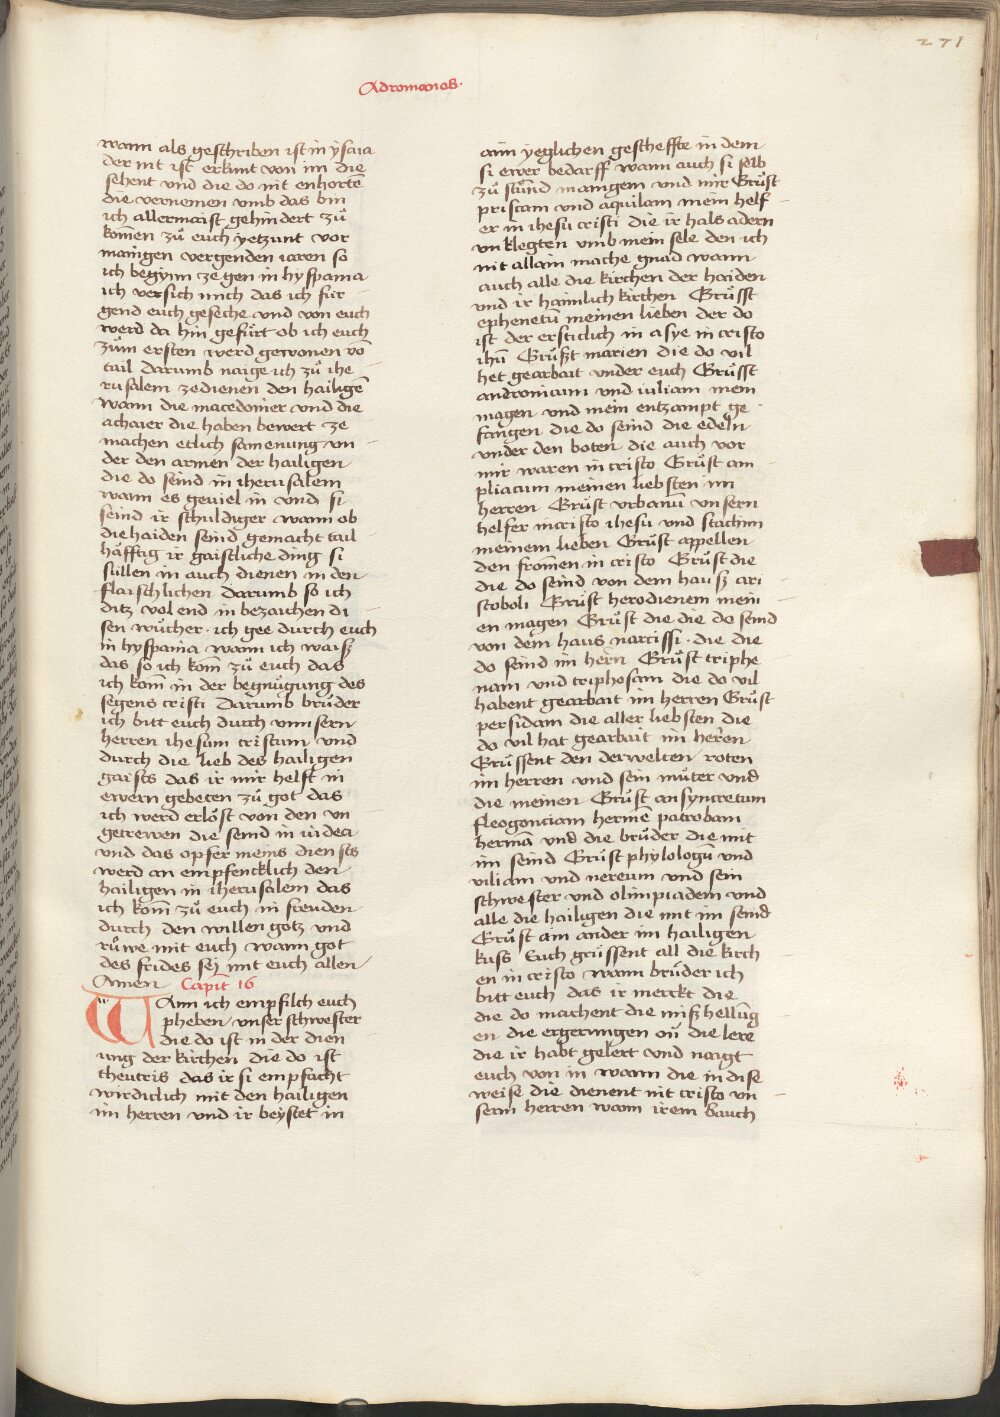 271
Adromanos·
wann als geschriben ist in ysaia
der nit ist erkunt von im die
sehent vnd die do nit enhortē
die vernomen vmb das bin
ich allermaist gehindert zů
komen zů euch yetzunt vor
mainigen vergenden iaren so
ich beginn ze gen in hyspania
ich versich mich das ich für
gend euch geseche vnd von euch
werd da hin gefürt ob ich euch
zům ersten werd gewonen vō
tail darumb naige ich zů ihe
rusalem zedienen den hailigē
wann die macedonier vnd die
achaier die haben bewert ze
machen etlich samenung vn
der den armen der hailigen
die do seind in iherusalem
wann es geuiel in vnd si
seind ir schuldiger wann ob
die haiden seind gemacht tail
häfftig ir gaistliche ding si
süllen in auch dienen in den
flaischlichen darumb so ich
ditz vol end in bezaichen di
sen wůcher · ich gee durch euch
in hyspania wann ich waiß
das so ich kom zů euch das
ich kom in der begnügung des
segens cristi Darumb brüder
ich bitt euch durch vnnsern
herren ihesum cristum vnd
durch die lieb des hailigen
gaists das ir mir helft in
ewern gebeten zů got das
ich werd erlöst von den vn
getrewen die seind in iudea
vnd das opfer meins diensts
werd an empfencklich den
hailigen in iherusalem das
ich kom zů euch in freuden
durch den willen gotz vnd
rüwe mit euch wann got
des frides sej mit euch allen
Amen Capit 16
Wann ich empfilch euch
pheben vnser schwester
die do ist in der dien
ung der kirchen die do ist
theutris das ir si empfacht
wirdiclich mit den hailigen
im herren vnd ir beystet in
aim yeglichen gescheffte in dem
si ewer bedarff wann auch si selb
zů stůnd maingem vnd mir Grůst
priscam vnd aquilam mein helf
er in ihesu cristi die ir hals adern
vnklegten vmb mein sele den ich
nit allain mache gnad wann
auch alle die kirchen der haiden
vnd ir haimlich kirchen Grůsst
ephenetū meinen lieben der do
ist der ersticlich in asye in cristo
ihū Grüßt marien die do vil
het gearbait vnder euch Grůsst
andronicum vnd iuliam mein
magen vnd mein entzampt ge
fangen die do seind die edeln
vnder den boten die auch vor
mir waren in cristo Grůst am
pliacum meinen liebsten im
herren Grůst vrbanū vnsern
helfer in cristo ihesu vnd stachin
meinem lieben Grůst appellen
den fromen in cristo Grůst die
die do seind von dem hauß ari
stoboli Grůst herodienem mein
en magen Grůst die die do seind
von dem haus narcissi · die die
do seind im hern Grůst triphe
nam vnd triphosam die do vil
habent gearbait im herren Grůst
persidam die aller liebsten die
do vil hat gearbait im herren
Grůssent den derwelten roten
im herren vnd sein můter vnd
die meinen Grůst ansyncretum
fleogonciam hermē patrobam
hermā vnd die brüder die mit
im seind Grůst phylologū vnd
viliam vnd nereum vnd sein
schwester vnd olimpiadem vnd
alle die hailigen die mit im seind
Grůst ain ander im hailigen
kuss Euch grüssent all die kirch
en in cristo wann brüder ich
bitt euch das ir merckt die
die do machent die mißhellūg
en die ergerungen oū die lere
die ir habt gelert vnd naigt
euch von in wann die in dise
weise die dienent nit cristo vn
serm herren wann irem bauch